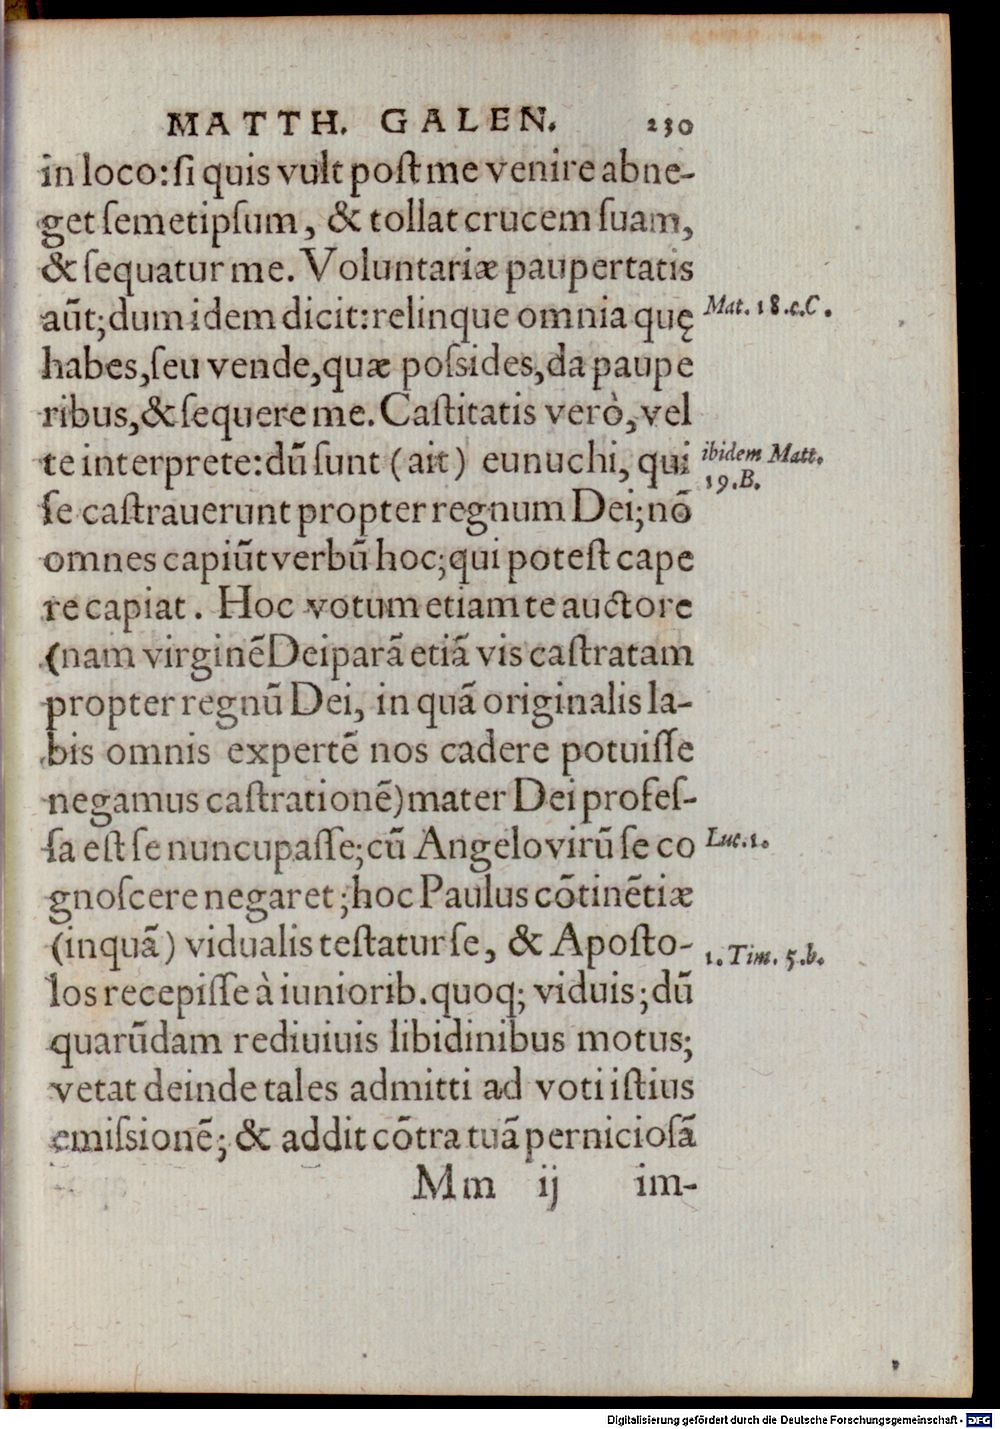 MATTH. GALEN. 230
in loco: ſi quis vult poſt me venire abne-
get ſemetipſum, & tollat crucem ſuam,
& ſequatur me. Voluntariæ paupertatis
aũt; dum idem dicit: relinque omnia quę
Mat. 18.c.C.
habes, ſeu vende, quæ poſsides, da paupe
ribus, & ſequere me. Caſtitatis verò, vel
te interprete: dũ ſunt (ait) eunuchi, qui
ibidem Matt.
19.B.
ſe caſtrauerunt propter regnum Dei; nõ
omnes capiũt verbũ hoc; qui poteſt cape
re capiat. Hoc votum etiam te auctore
(nam virginẽ Deiparã etiã vis caſtratam
propter regnũ Dei, in quã originalis la-
bis omnis expertẽ nos cadere potuiſſe
negamus caſtrationẽ) mater Dei profeſ-
ſa eſt ſe nuncupaſſe; cũ Angelo virũ ſe co
Luc.1.
gnoſcere negaret; hoc Paulus cõtinẽtiæ
(inquã) vidualis teſtatur ſe, & Apoſto-
1. Tim. 5.b.
los recepiſſe à iuniorib. quoq; viduis; dũ
quarũdam rediuiuis libidinibus motus;
vetat deinde tales admitti ad voti iſtius
emiſsionẽ; & addit cõtra tuã pernicioſã
Mm ij im-
Digitalisierung gefördert durch die Deutsche Forschungsgemeinschaft - DFG